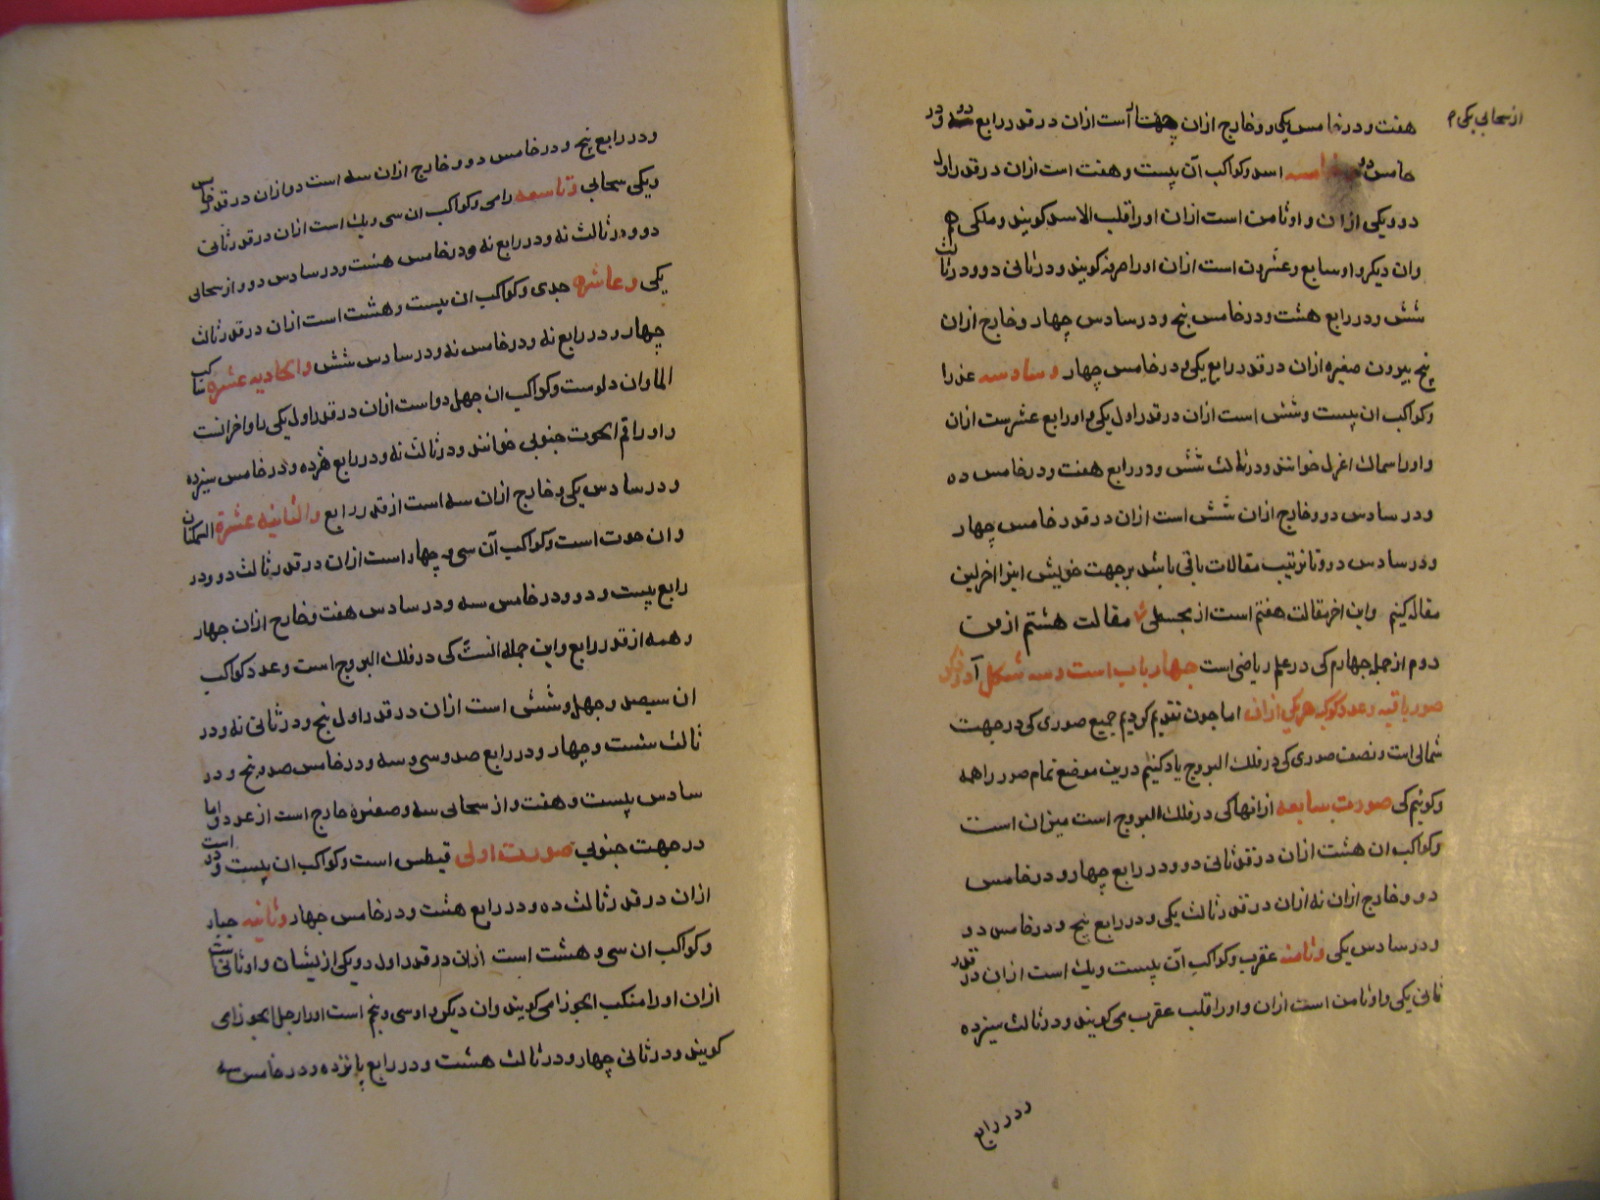 از سحابی یکی م
هفت و در خامس یکی و خارج ازان چهار است ازان در قدر رابع دو و در
خامس دو و خامسه اسد و کواکب آن بیست و هفت است ازان در قدر اول
دو و یکی ازان و او ثامن است ازان او را قلب الاسد کویند و ملکی هم
وان دیکر و او سابع و عشرون است ازان او را صرفه کویند و در ثانی دو و در ثالث
شش و در رابع هشت و در خامس پنج و در سادس چهار و خارج ازان
پنج بیرون صغیره ازان در قدر رابع یکی و در خامس چهار و سادسه عذرا
و کواکب ان بیست و شش است ازان در قدر اول یکی و او رابع عشرست ازان
و او را سماک اعزل خوانند و در ثالث شش و در رابع هفت و در خامس ده
و در سادس دو و خارج ازان شش است ازان در قدر خامس چهار
و در سادس دو و تا ترتیب مقالات باقی باشد بر جهت خویش اینرا اخر این
مقاله کنیم واین اخر مقالت هفتم است از مجسطی مقالت هشتم از فن
دوم از جمله چهارم کی در علم ریاضی است چهار باب است و سه شکل آ در ذکر
صور باقیه و عدد کوکب هر یکی ازان اما چون تقدیم کردیم جمیع صوری کی در جهت
شمالی است و نصف صوری کی در فلک البروج یاد کنیم درین موضع تمام صور را همه
و کوئیم کی صورت سابعه از انها کی در فلک البروج است میزان است
و کواکب ان هشت ازان در قدر ثانی دو و در رابع چهار و در خامس
دو و خارج ازان نه ازان در قدر ثالث یکی و در رابع پنج و در خامس دو
و در سادس یکی و ثامنه عقرب و کواکب آن بیست و یک است ازان در قدر
ثانی یکی و او ثامن است ازان و او را قلب عقرب می کویند و در ثالث سیزده
و در رابع
و در رابع پنج و در خامس دو و خارج ازان سه است دو ازان در قدر خامس
و یکی سحابی و تاسعه رامی و کواکب ان سی و یک است ازان در قدر ثانی
دو و در ثالث نه و در رابع نه و در خامس هشت و در سادس دو و از سحابی
یکی و عاشره جدی و کواکب ان بیست و هشت است ازان در قدر ثالث
چهار و در رابع نه و در خامس نه و در سادس شش والحادیه عشره ساکب
الما وان دلوست و کواکب ان چهل دو است ازان در قدر اول یکی و او اخر انست
و او را فم الحوت جنوبی خوانند و در ثالث نه و در رابع هژده و در خامس سیزده
و در سادس یکی و خارج ازان سه است از قدر رابع والثانیه عشرة السمکتان
وان حوت است و کواکب آن سی و چهار است ازان در قدر ثالث دو و در
رابع بیست و دو و در خامس سه و در سادس هفت و خارج ازان چهار
و همه از قدر رابع واین جمله آنست کی در فلک البروج است و عدد کواکب
ان سیصد و چهل و شش است ازان در قدر اول پنج و در ثانی نه و در
ثالث شست و چهار و در رابع صد و سی و سه و در خامس صد و پنج و در
سادس بیست و هفت و از سحابی سه و صغیره خارج است از عدد و اما
در جهت جنوبی صورت اولی قیطس است و کواکب ان بیست و دو است
ازان در قدر ثالث ده و در رابع هشت و در خامس چهار و ثانیه جبار
و کواکب ان سی و هشت است ازان در قدر اول دو یکی ازیشان و او ثانی است
ازان او را منکب الجوزا می کویند وان دیکر و او سی و پنجم است او را رجل الجوزا می
کویند و در ثانی چهار و در ثالث هشت و در رابع پانزده و در خامس سه